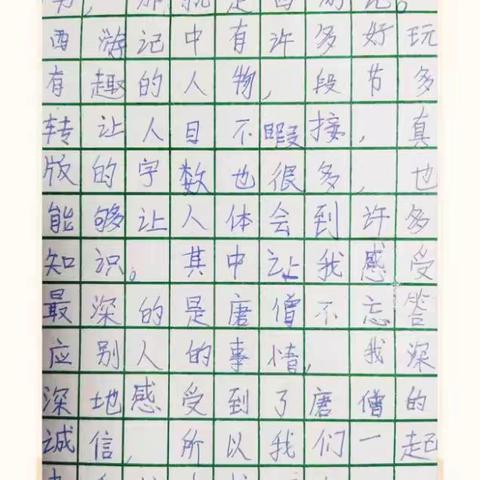 书，那就是西游记。
西游记中有许多好玩
有趣的人物，段节多
转让人目不暇接，真
版的字数也很多，也
能够让人体会到许多
知识。其中让我感受
最深的是唐僧不忘答
应别人的事情，我深
深地感受到了唐僧的
诚信，所以我们一起